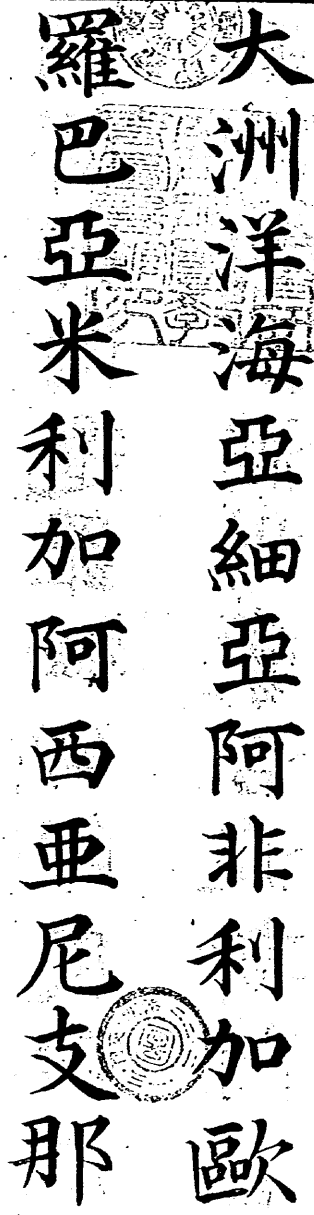 大洲洋海亞細亞阿非利加歐
羅巴亞米利加阿西亜尼支那